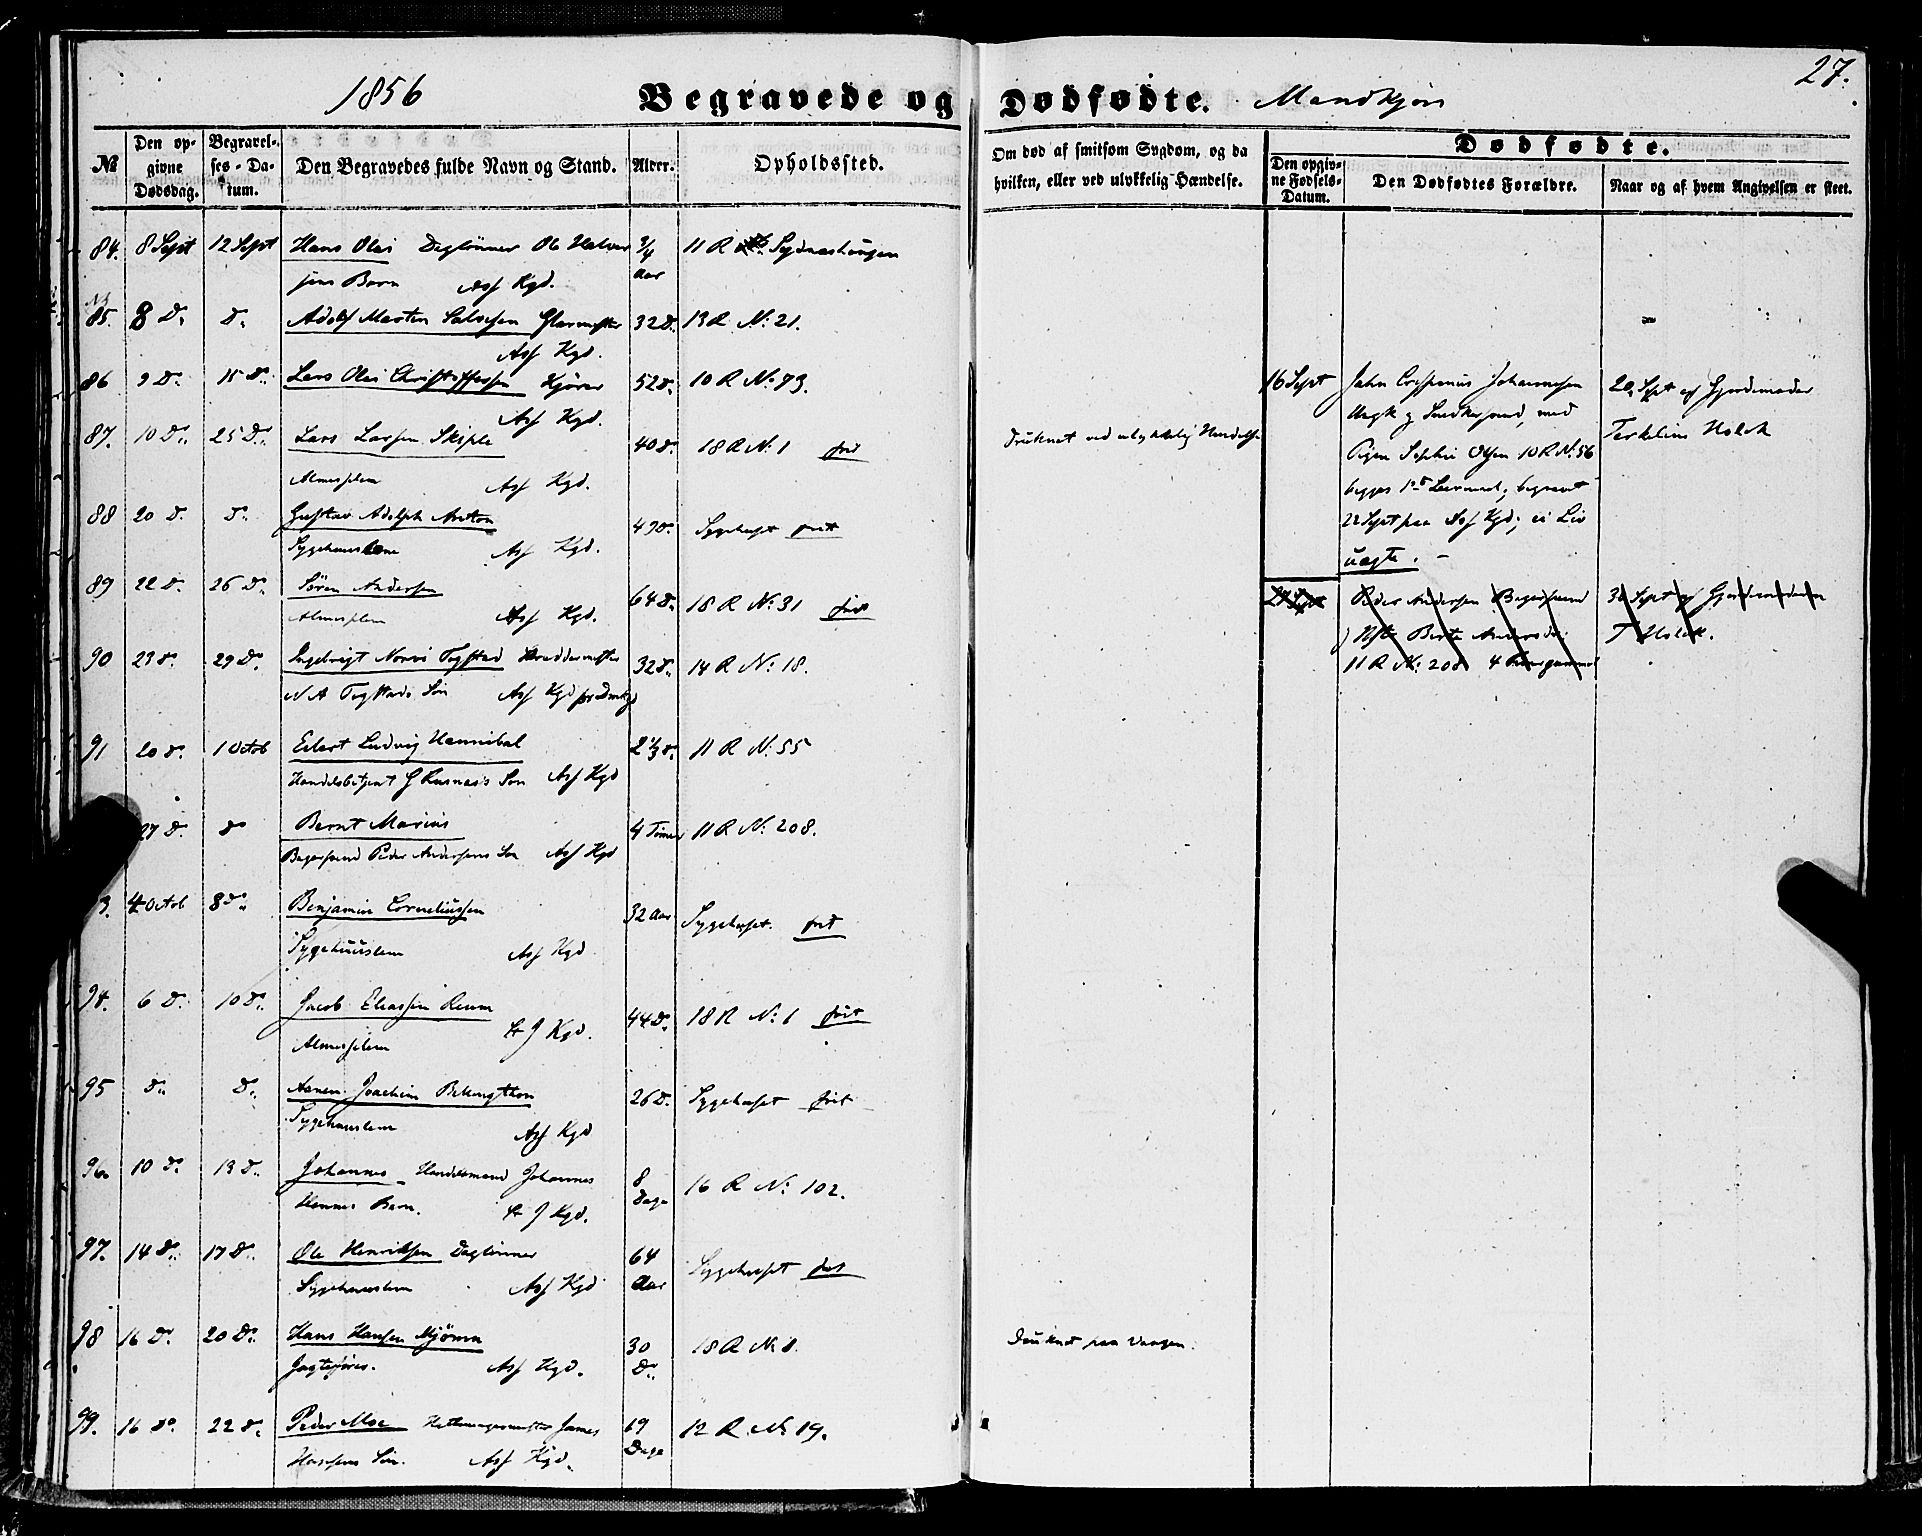 1856
Begravede og Dødfødte. Mandkjøn
27.
№
Den opgivne Dødsdag.
Begravelses-Datum.
Den Begravedes fulde Navn og Stand.
Alder.
Opholdssted.
Om død af smitsom Sygdom, og da hvilken, eller ved ulykkelig Hændelse.
Dødfødte.
Den opgivne Fødsels-Datum.
Den Dødfødtes Forældre.
Naar og af hvem Angivelsen er skeet.
84. 8 Sept 12 Sept Hans Olai Daglønner Ole Halvor 3/4 Aar 11 R Sydneshougen
sens Barn Ass Kgd.
85. 8 D. D. Adolf Martin Salvesen Glarmester 32 D. 13 R. No: 21.
Ass Kgd.
86 9 D. 15 D. Lars Olai Christoffersen Kjører 52 D. 10 R No: 73.
Ass Kgd.
87. 10 D. 25 D. Lars Larsen Skiple 40 D. 18 R No: 1 frit Druknet ved ulykkelig Hændelse
Almueslem Ass Kgd.
88 20 D. D. Gustav Adolph Anton 49 D. Sygehuset frit
Sygehuuslem Ass Kgd.
89 22 D. 26 D. Søren Andersen 64 D. 18 R No: 31 frit
Almueslem Ass Kgd.
90 23 D. 29 D. Ingebrigt Norvi Fogstad Skreddermester 32 D. 14 R No: 18.
N A Fogstads Søn Ass Kgd
91 20 D. 1 Octob Edert Ludvig Hannibal 2 1/3 D. 11 R No: 55
Handelsbetjent G Rasmus's Søn Ass Kgd
27 D. D Bernt Marius 4 Timer 11 R No: 208.
Bagersvend Peder Andersens Søn Ass Kgd
3. 4 Octob 8 D. Benjamin Corneliussen 32 Aar Sygehuset. frit
Sygehuuslem Ass Kgd
94. 6 D. 10 D. Jacob Eliassen Reum 44 D. 18 R No: 1 frit
Almueslem St J Kgd.
95 D. D. Joachim 26 D. Sygehuset frit
Sygehuuslem Ass Kgd
96. 10 D. 13 D. Johannes Handelsmand Johannes 8 Dage 16 R No: 102.
Barn. St J Kgd.
97. 14 D. 17 D. Ole Henriksen Daglønner 64 Aar Sygehuset frit
Sygehuuslem Ass Kgd
98 16 D. 20 D. Hans Hansen Mjømen 30 D. 18 R No 1. Druknet paa Vaagen.
Ass Kgd.
99. 16 D. 22 D. Peder Moe Hattemagermester James 19 Dage 12 R. No 19.
Hansens Søn. Ass Kgd.
16 Sept
Jahn Crispinus Johannesen
Ungk og Snedkersvend, med
Pigen Sophie Olsen 10 R No: 56
begges 1ste Leiermaal, begravet
22 Sept paa Ass Kgd; ei Liv
uægte. –
20 Sept af Gjordemoder
Terkeline Holck
29 Sept
Peder Andersen Bagersvend
Berte Andersd.
11 R No: 208 4
30 Sept af Gjordemoder
T Holck.